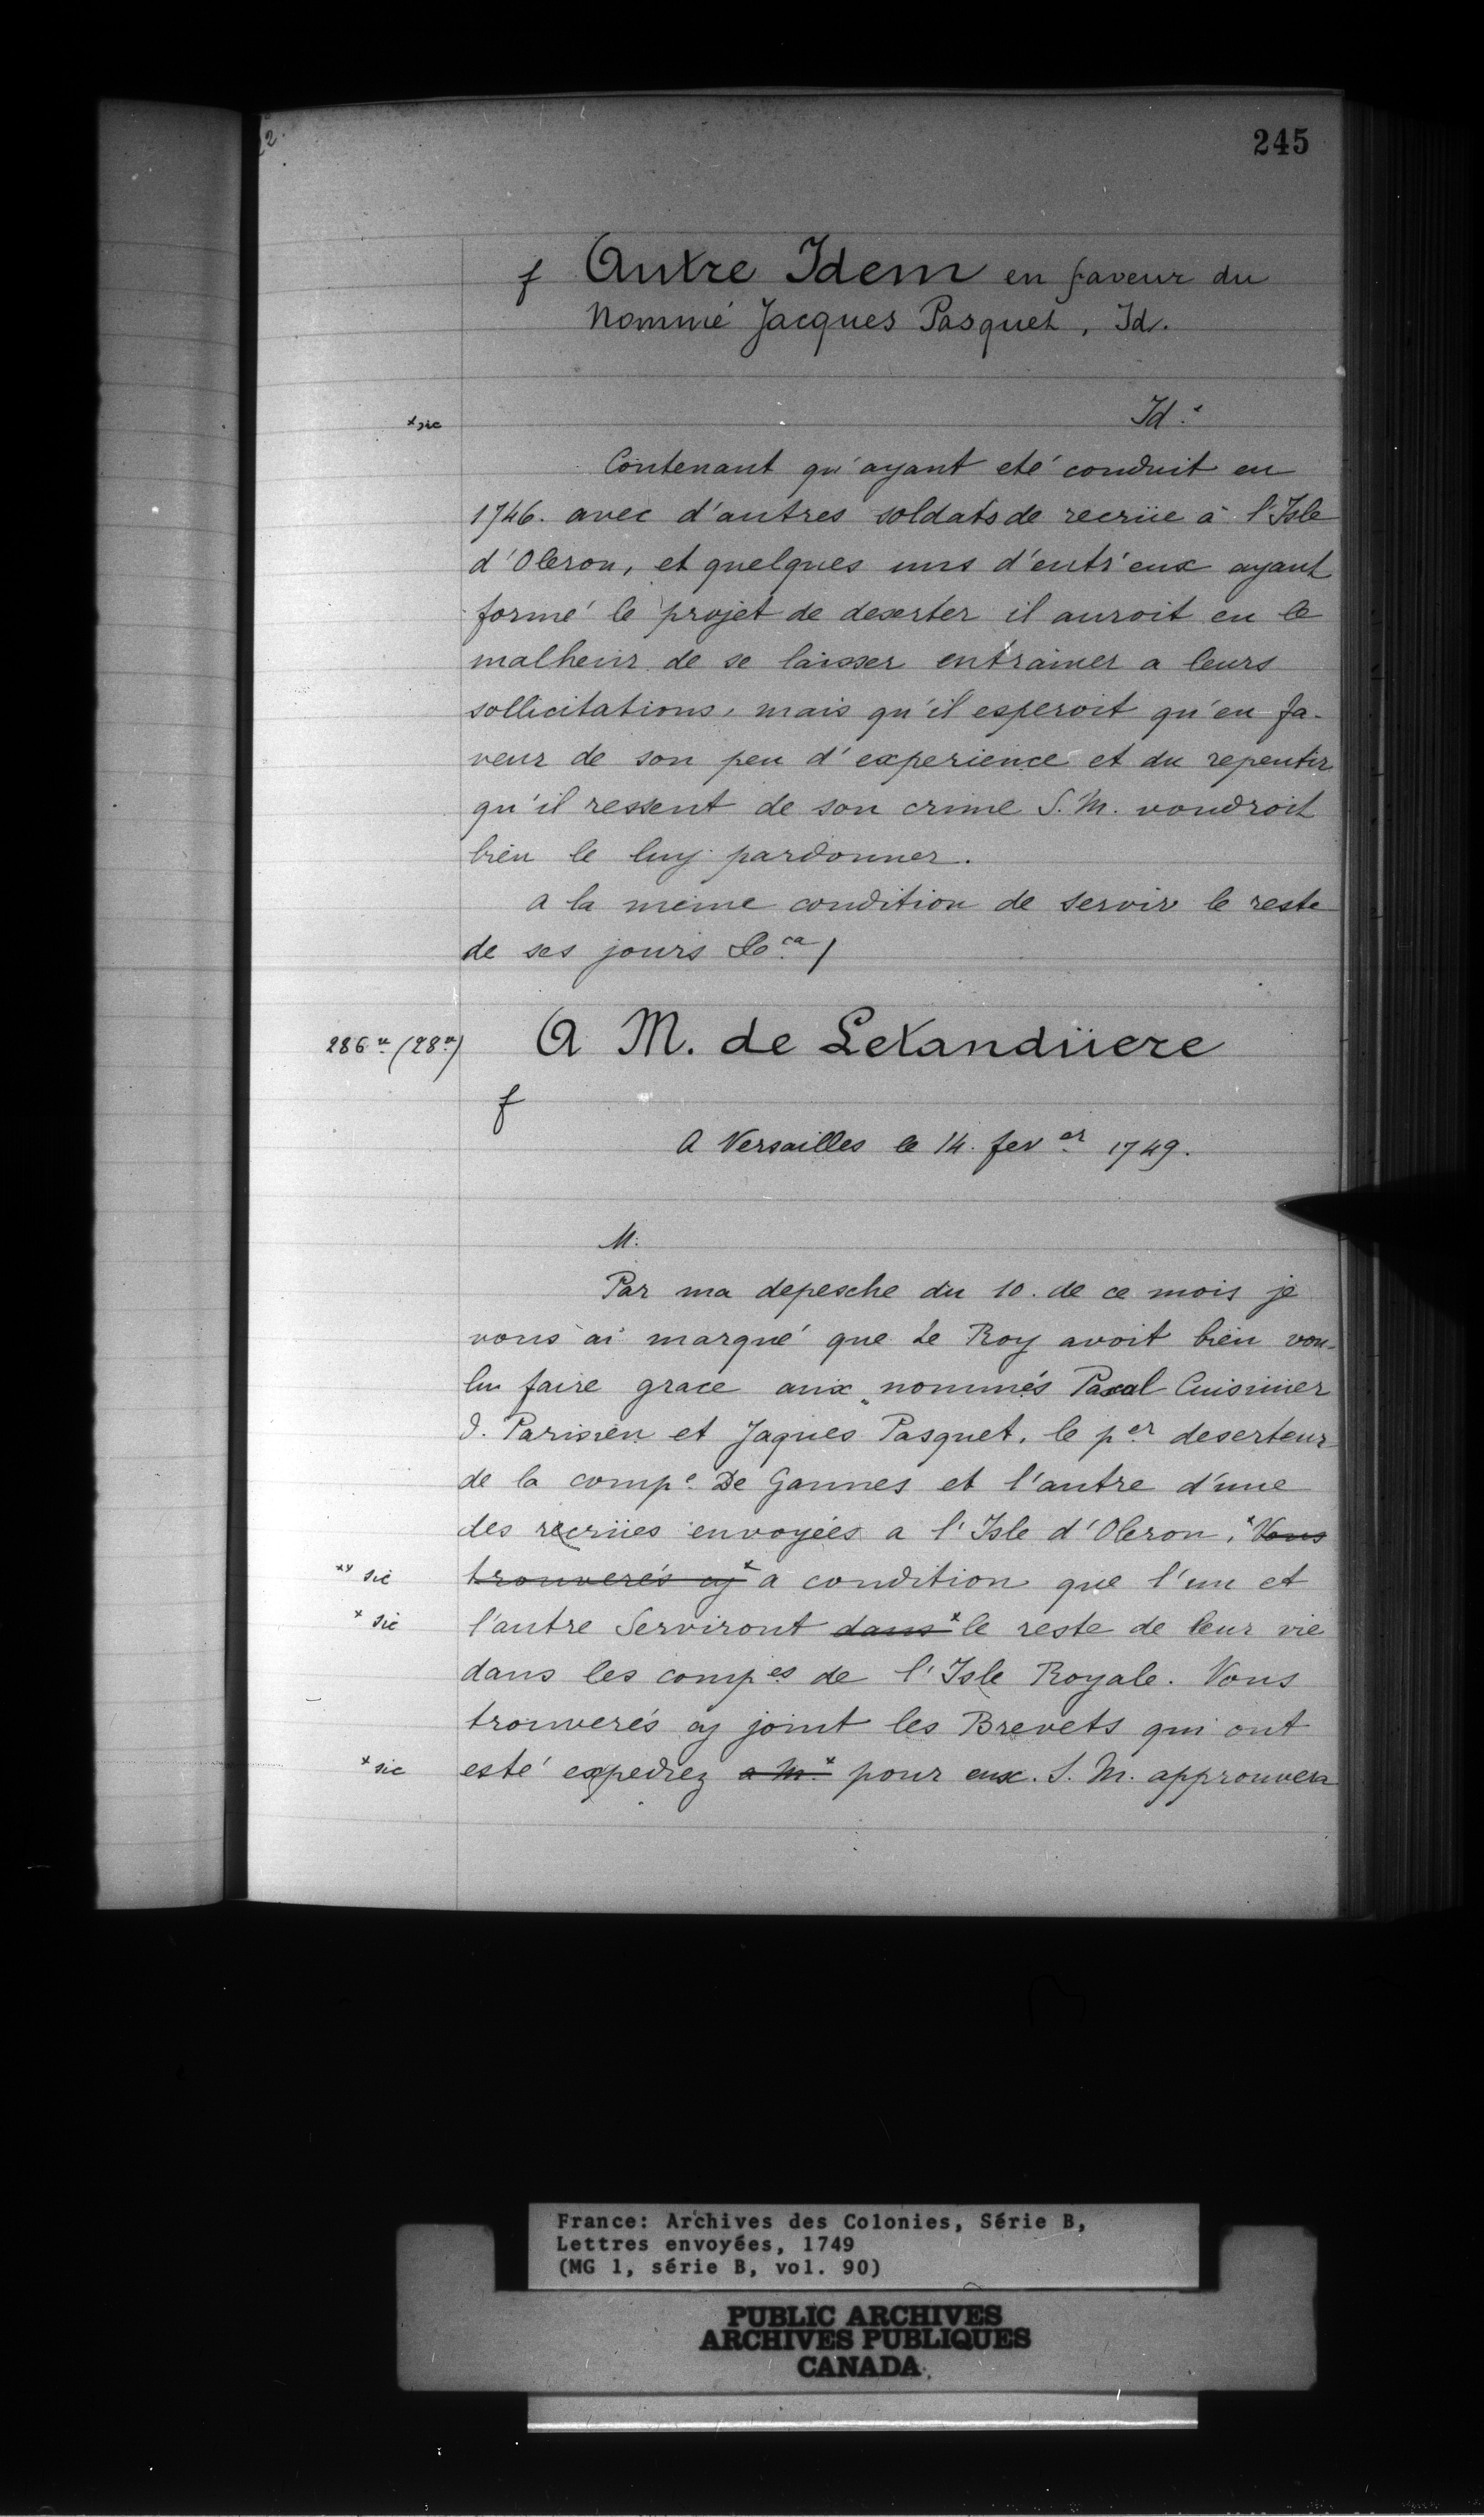 245
f Autre Idem en faveur du
Nommé Jacques Pasquet, Id.
Id.x
x sic
Contenant qu'ayant eté conduit en
1746. avec d'autres soldats de recrüe à l'Isle
d'Oleron, et quelques uns d'entr'eux ayant
formé le projet de deserter il auroit eu le
malheur de se laisser entrainer a leurs
sollicitations, mais qu'il esperoit qu'en fa-
veur de son peu d'experience et du repentir
qu'il ressent de son crime S. M. voudroit
bien le luy pardonner.
a la même condition de servir le reste
de ses jours &ca /
286 u (28 u) A M. de LeXandüere
f
A Versailles le 14. fever 1749.
M.
Par ma depesche du 10. de ce mois je
vous ai marqué que Le Roy avoit bien vou-
lu faire grace aux nommés Pascal Cuisinier
d. Parisien et Jaques Pasquet, le per deserteur
de la compe De Gannes et l'autre d'une
des recrües envoyées a l'Isle d'Oleron, x Vous
xx sic trouverés cy x a condition que l'un et
x sic l'autre Serviront dans x le reste de leur vie
dans les compes de l'Isle Royale. Vous
trouverés cy joint les Brevets qui ont
x sic esté expediez a M. x pour eux. S. M. approuvera
France: Archives des Colonies, Série B,
Lettres envoyées, 1749
(MG 1, série B, vol. 90)
PUBLIC ARCHIVES
ARCHIVES PUBLIQUES
CANADA